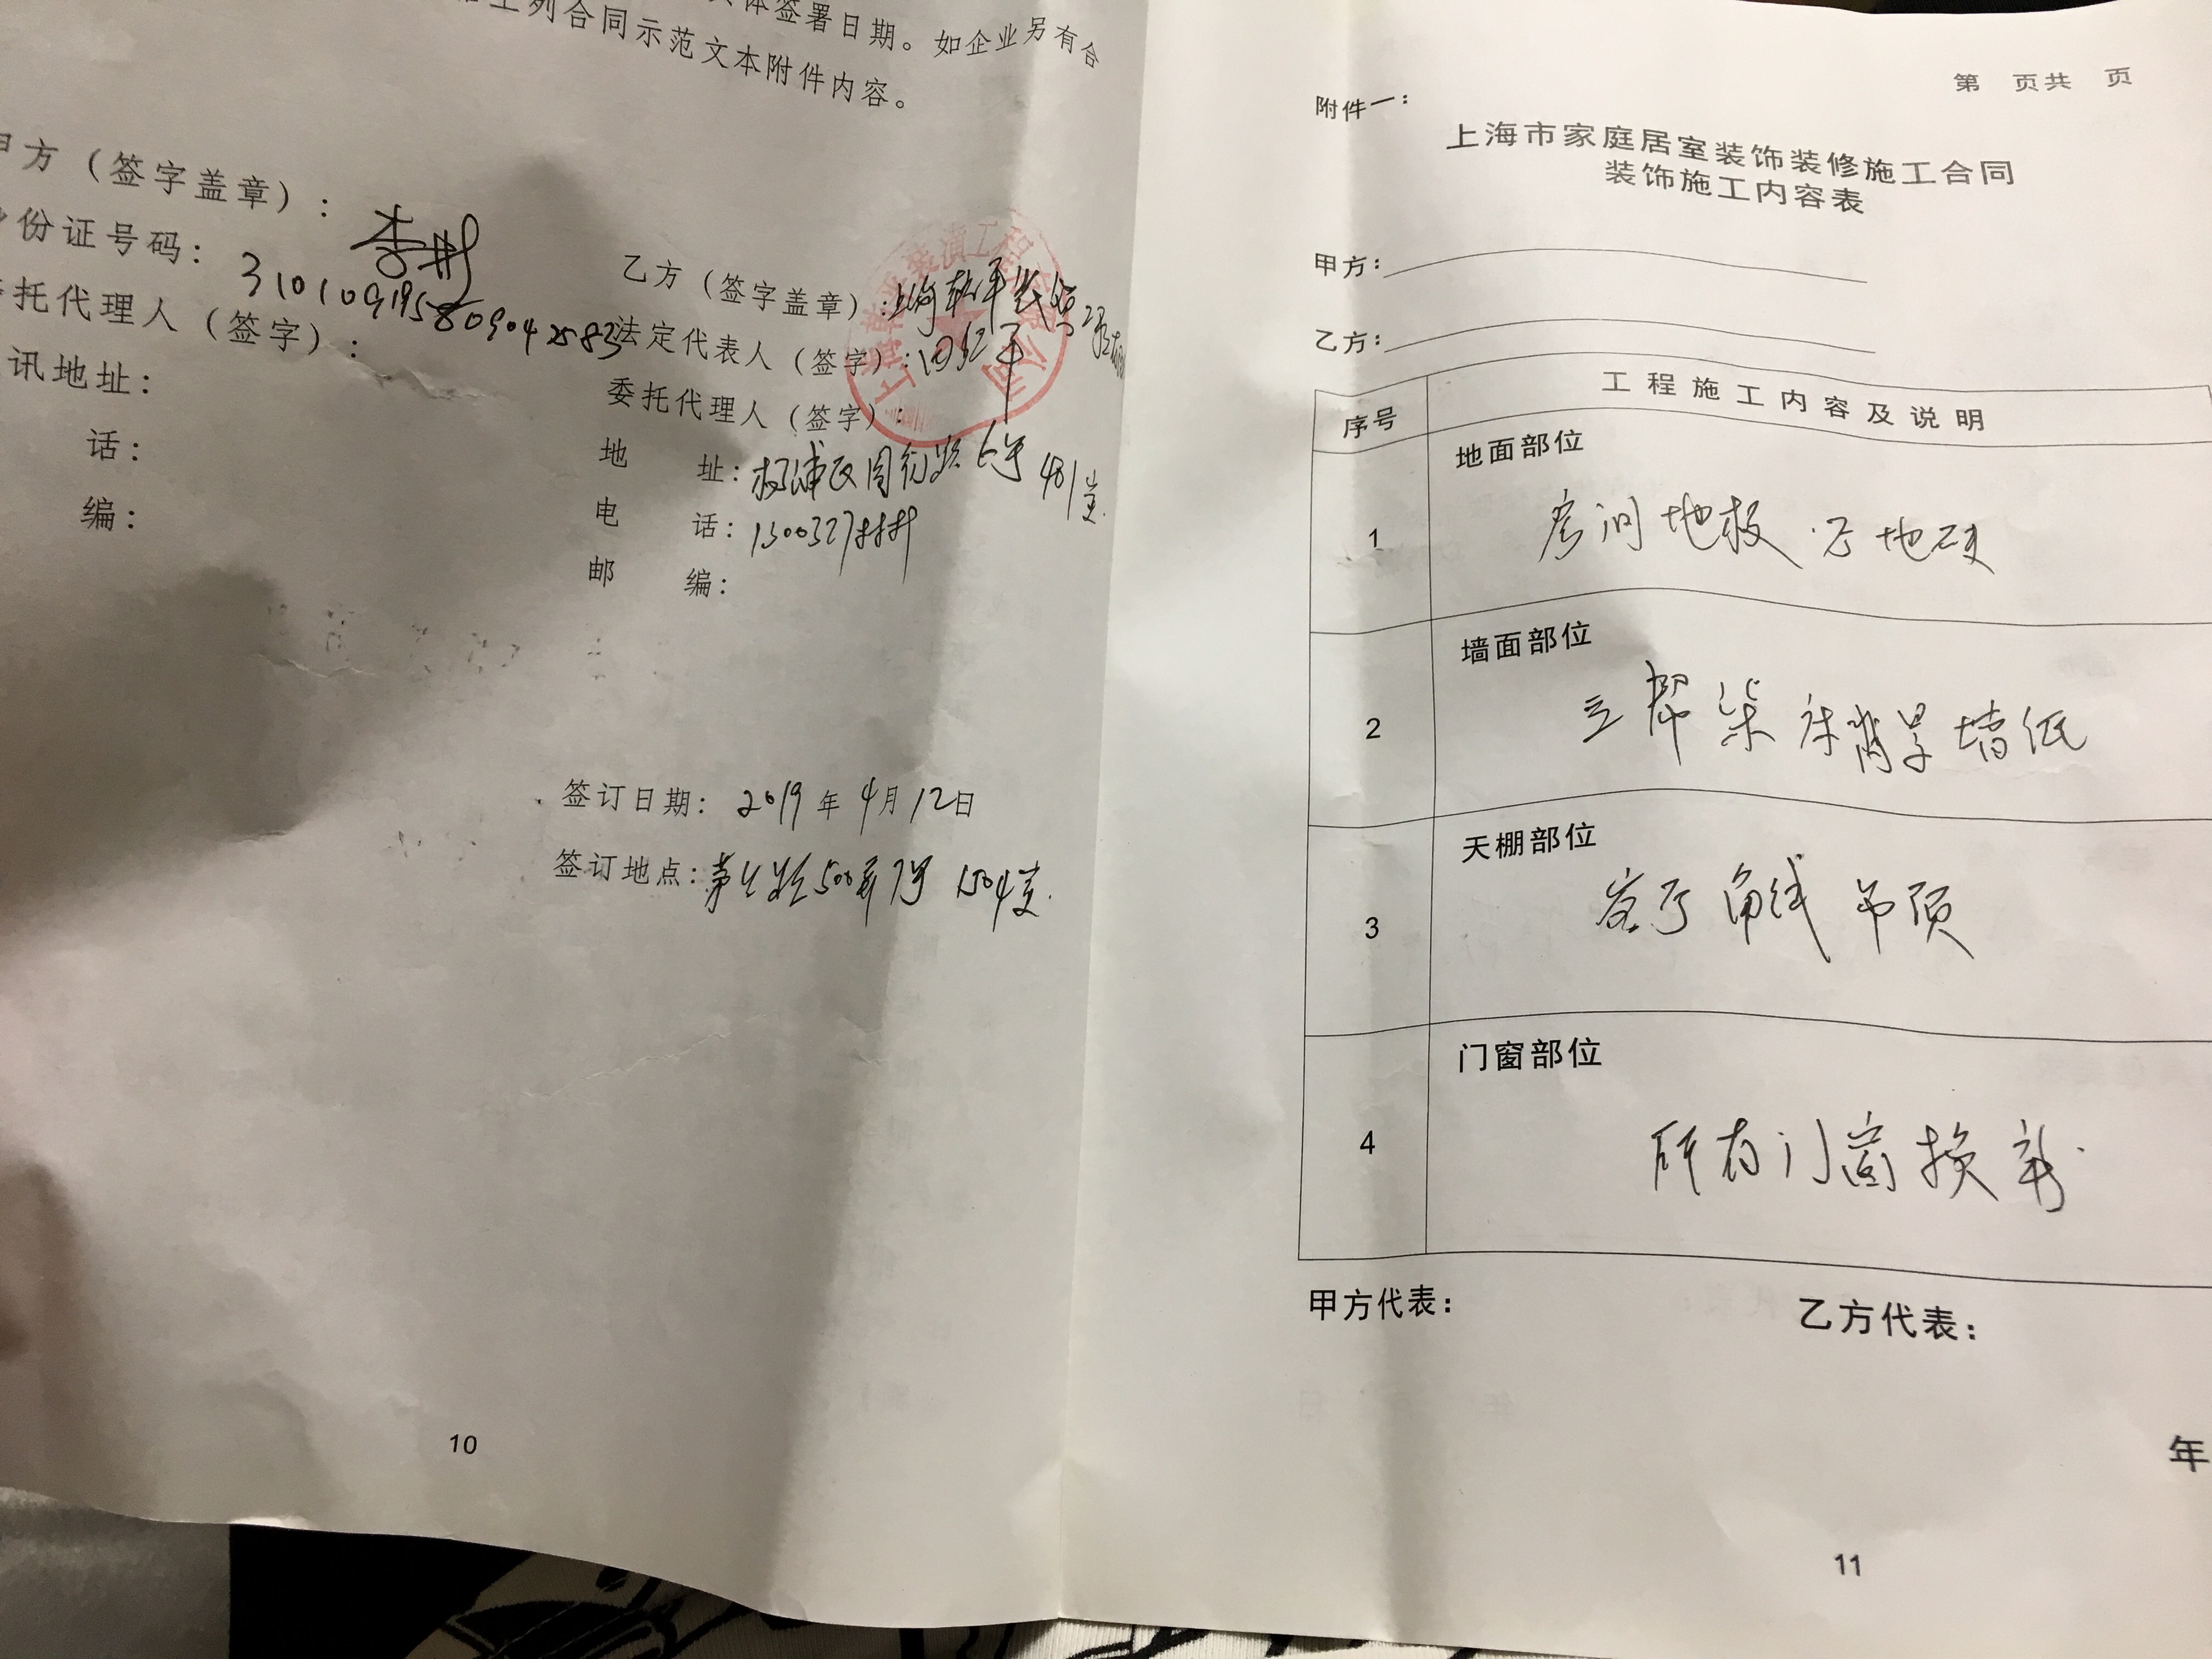 体签署日期。如企业另有合
上列合同示范文本附件内容。
甲方（签字盖章）：
份证号码：310109195809042583
托代理人（签字）：
讯地址：
话：
编：
乙方（签字盖章）：上海
法定代表人（签字）：
委托代理人（签字）：
地 址：杨浦区国和路6号 401室.
电 话：1300327
邮 编：
签订日期：2019年4月12日
签订地点：500弄7号 1504室.
10
第 页共 页
附件一：
上海市家庭居室装饰装修施工合同
装饰施工内容表
甲方：
乙方：
序号 工程施工内容及说明
1 地面部位
房间地板 地砖
2 墙面部位
床背景墙纸
3 天棚部位
客厅角线 吊顶
4 门窗部位
所有门窗换新.
甲方代表： 乙方代表：
年
11